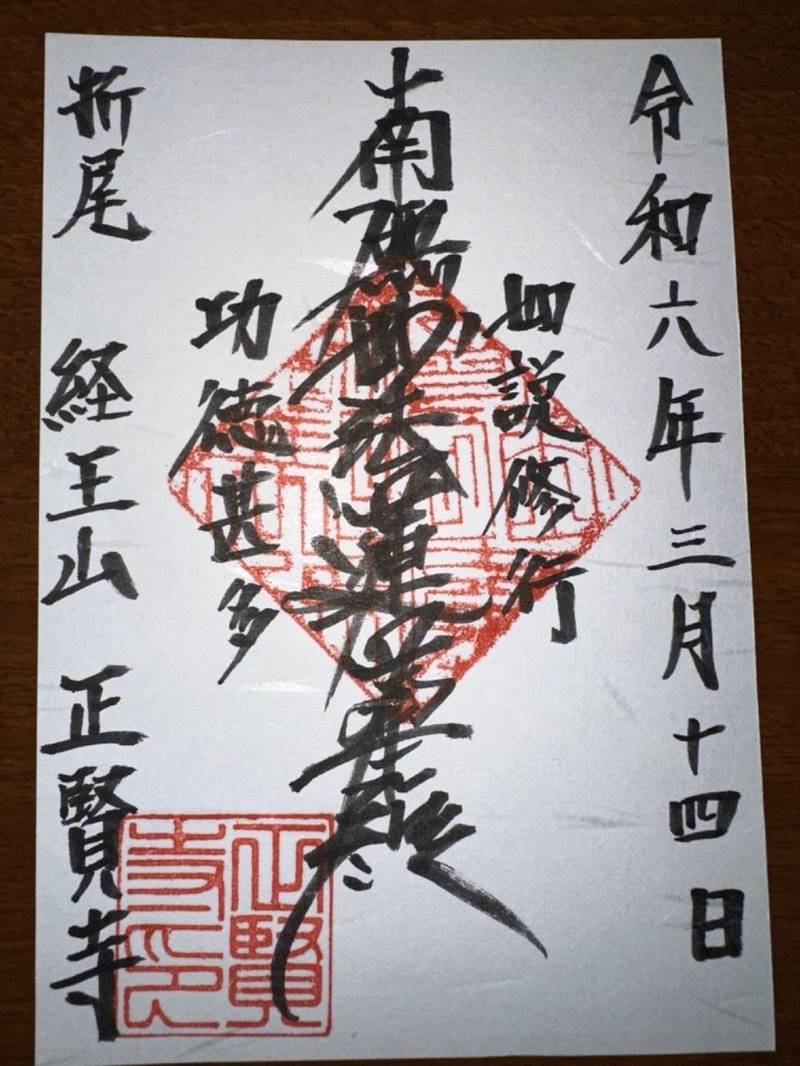 令和六年三月十四日
如説修行
南無妙法蓮華経
功徳甚多
折尾 経王山 正賢寺
正賢寺印